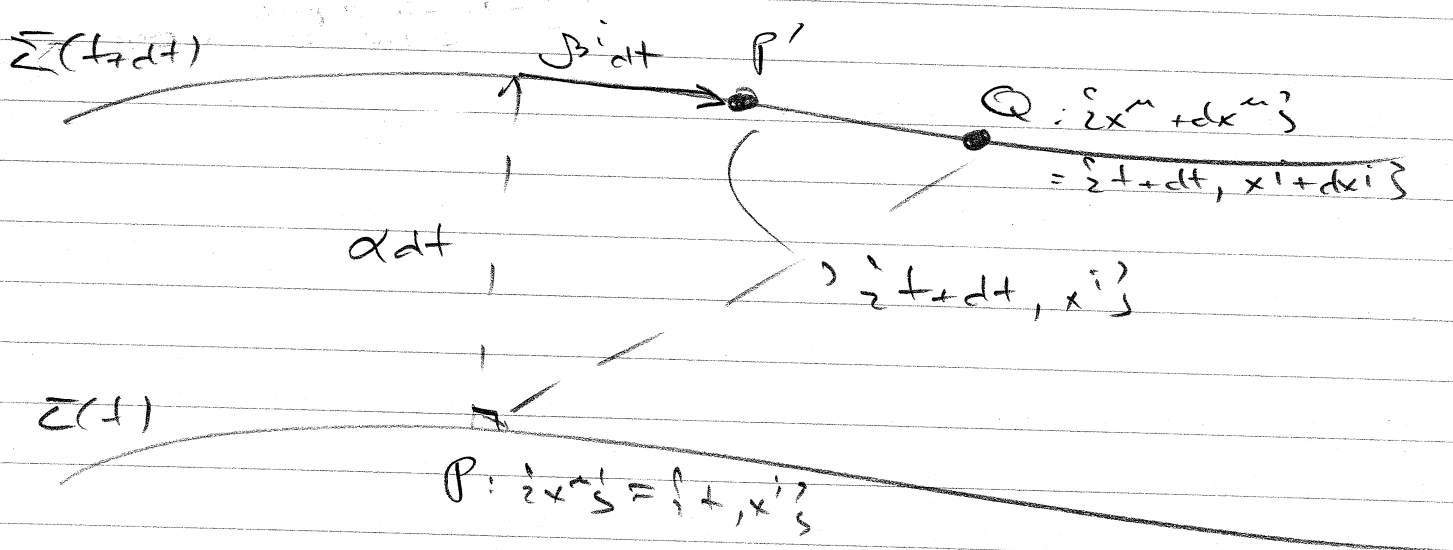 Σ(t+dt)
βⁱdt
P'
Q : {x^μ + dx^μ}
= {t+dt, xⁱ+dxⁱ}
αdt
{t+dt, xⁱ}
Σ(t)
P : {x^μ} = {t, xⁱ}